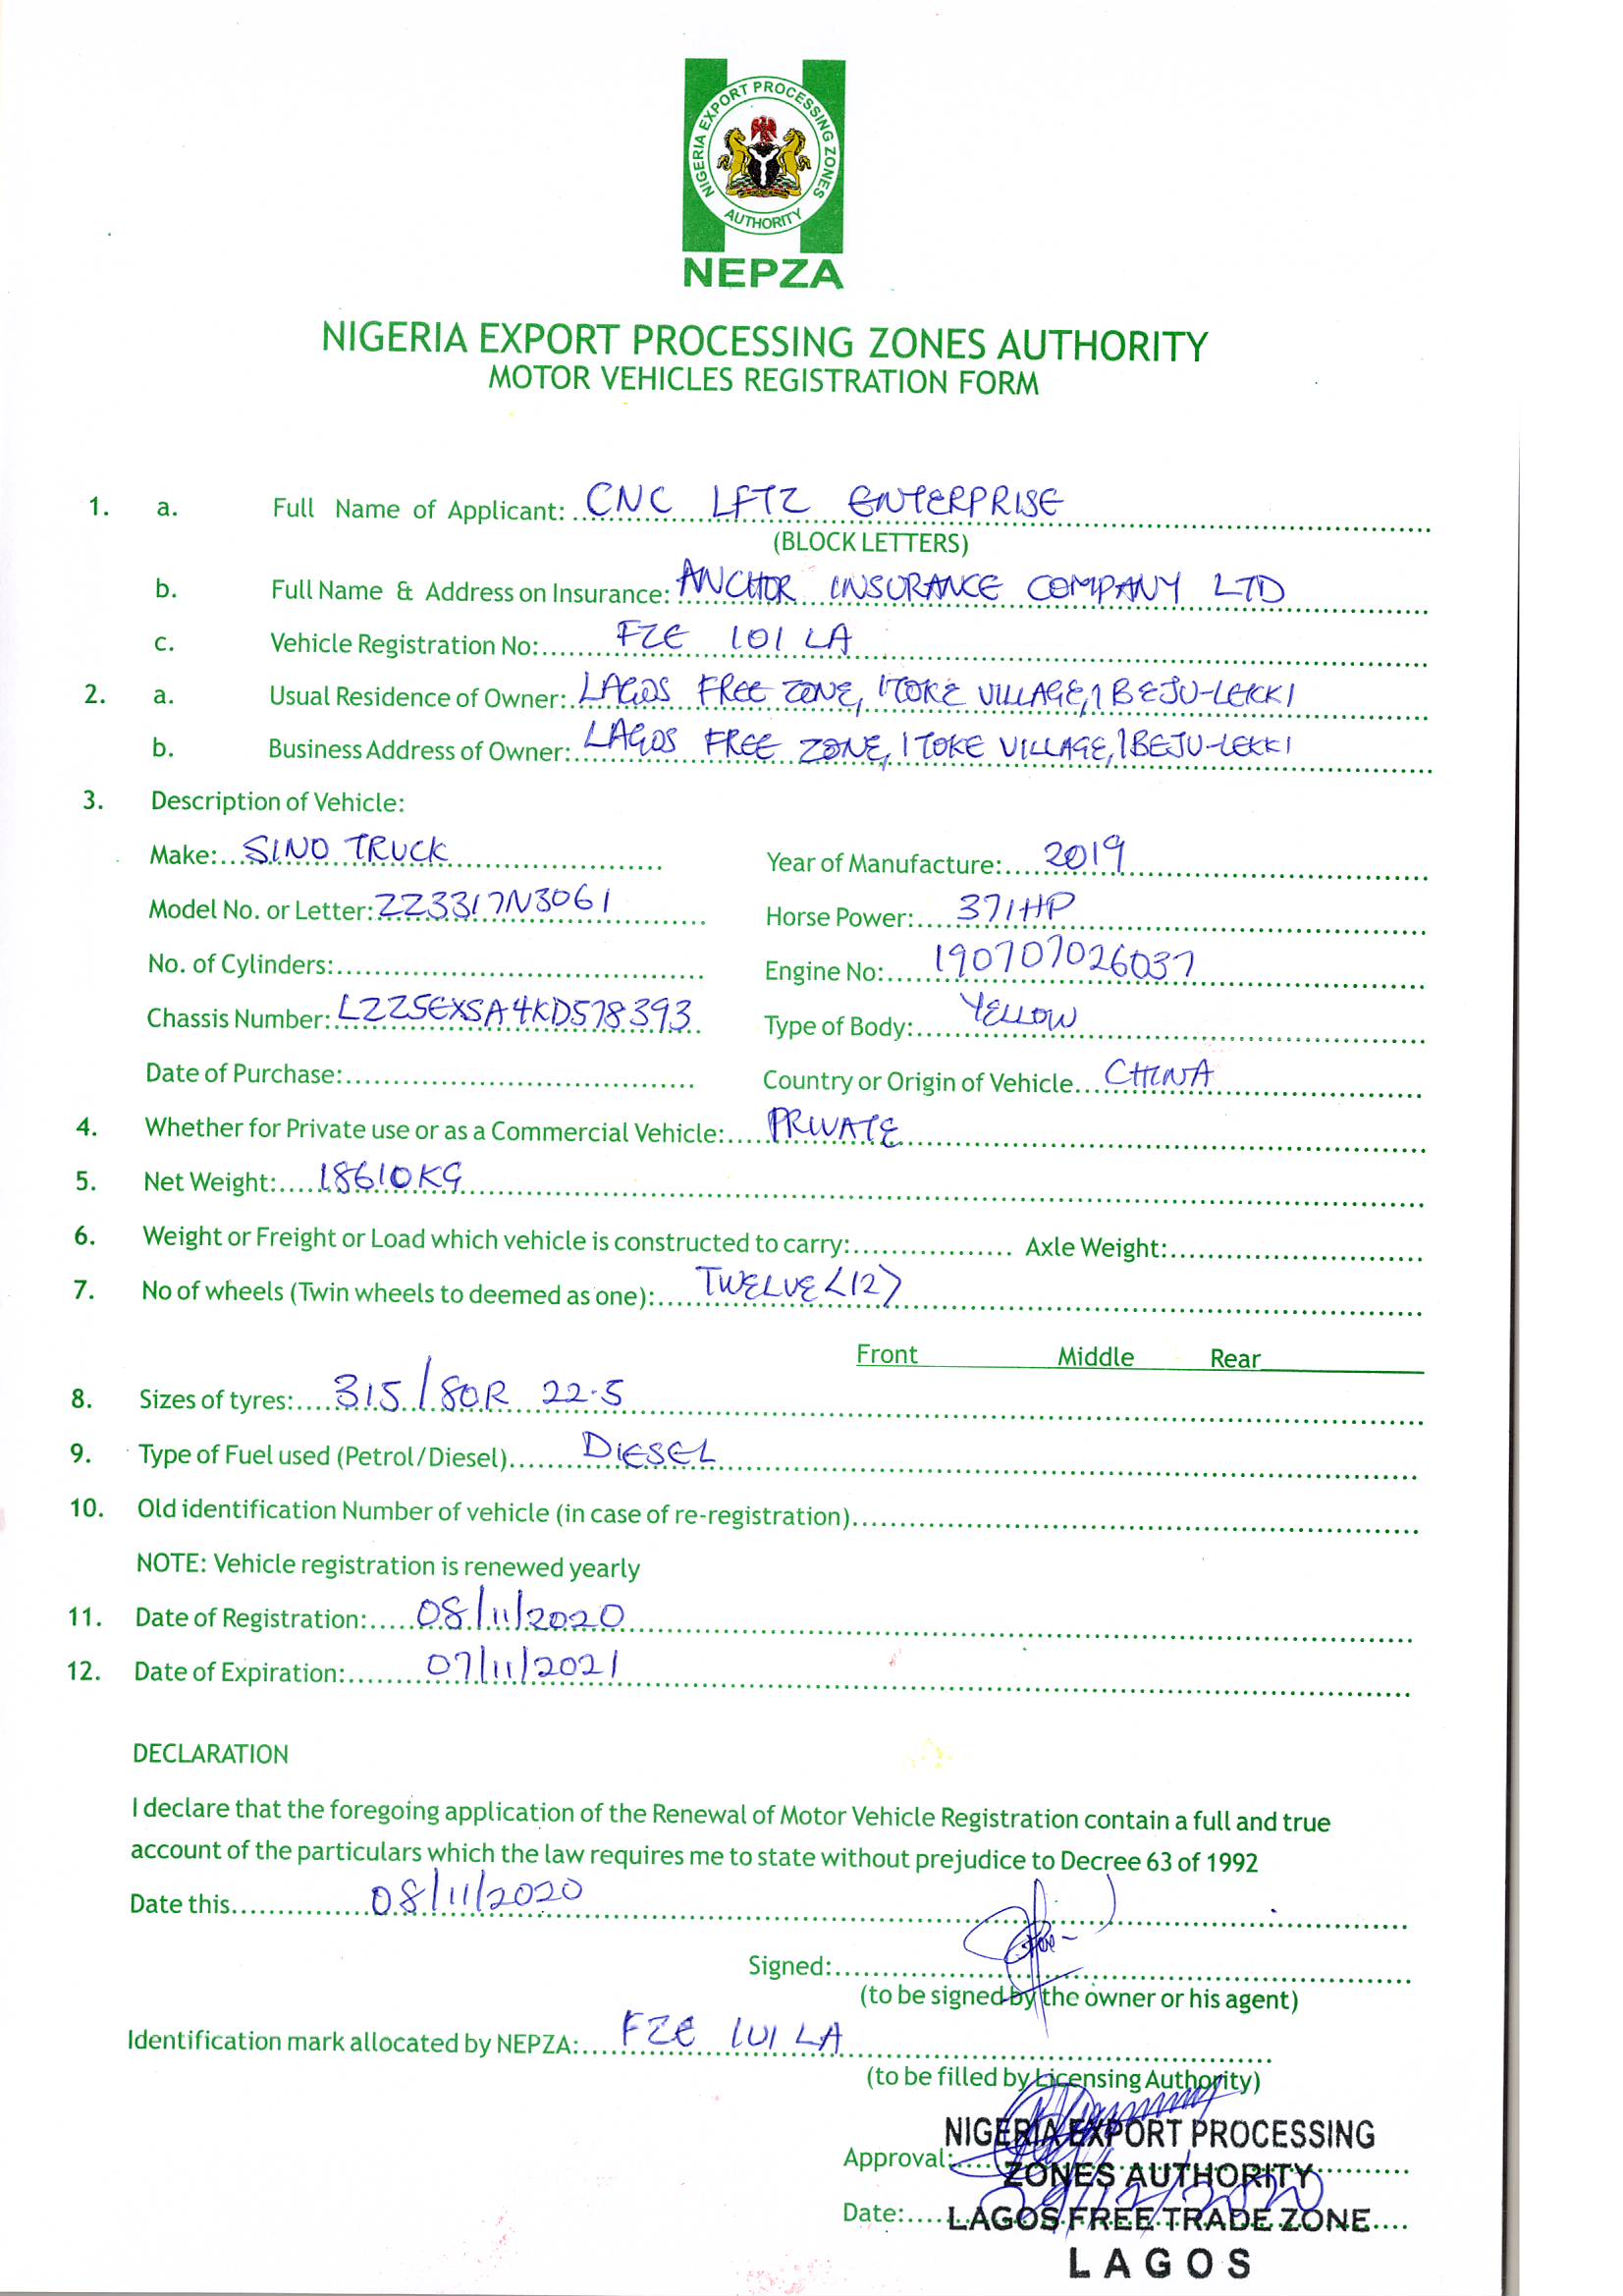 NIGERIA EXPORT PROCESSING ZONES
AUTHORITY
NEPZA
NIGERIA EXPORT PROCESSING ZONES AUTHORITY
MOTOR VEHICLES REGISTRATION FORM
1. a. Full Name of Applicant: CNC LFTZ ENTERPRISE
(BLOCK LETTERS)
b. Full Name & Address on Insurance: ANCHOR INSURANCE COMPANY LTD
c. Vehicle Registration No: FZE 101 LA
2. a. Usual Residence of Owner: LAGOS FREE ZONE, ITOKE VILLAGE, IBEJU-LEKKI
b. Business Address of Owner: LAGOS FREE ZONE, ITOKE VILLAGE, IBEJU-LEKKI
3. Description of Vehicle:
Make: SINO TRUCK Year of Manufacture: 2019
Model No. or Letter: ZZ3317N3061 Horse Power: 371HP
No. of Cylinders: Engine No: 190707026037
Chassis Number: LZZ5EXSA4KD578393 Type of Body: YELLOW
Date of Purchase: Country or Origin of Vehicle CHINA
4. Whether for Private use or as a Commercial Vehicle: PRIVATE
5. Net Weight: 18610KG
6. Weight or Freight or Load which vehicle is constructed to carry: Axle Weight:
7. No of wheels (Twin wheels to deemed as one): TWELVE <12>
Front Middle Rear
8. Sizes of tyres: 315/80R 22.5
9. Type of Fuel used (Petrol/Diesel) DIESEL
10. Old identification Number of vehicle (in case of re-registration)
NOTE: Vehicle registration is renewed yearly
11. Date of Registration: 08/11/2020
12. Date of Expiration: 07/11/2021
DECLARATION
I declare that the foregoing application of the Renewal of Motor Vehicle Registration contain a full and true
account of the particulars which the law requires me to state without prejudice to Decree 63 of 1992
Date this 08/11/2020
Signed:
(to be signed by the owner or his agent)
Identification mark allocated by NEPZA: FZE 101 LA
(to be filled by Licensing Authority)
NIGERIA EXPORT PROCESSING
Approval:
ZONES AUTHORITY
Date: LAGOS FREE TRADE ZONE
LAGOS